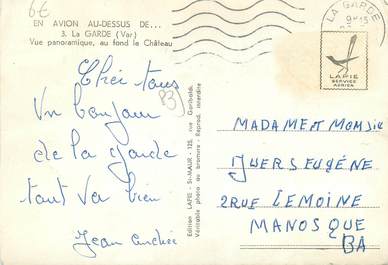 6€
EN AVION AU-DESSUS DE...
3. La GARDE (Var)
Vue panoramique, au fond le Château
LA GARDE
LAPIE
SERVICE
AERIEN
Chéri tous
Un bonjour
de la Garde
tout va bien
Jean André
Edition LAPIE - St-MAUR - 125, rue Garibaldi.
Véritable photo au bromure - Reprod. interdite
MADAME et MONSIE
EUGÉNE
2 RUE LEMOINE
MANOSQUE
BA